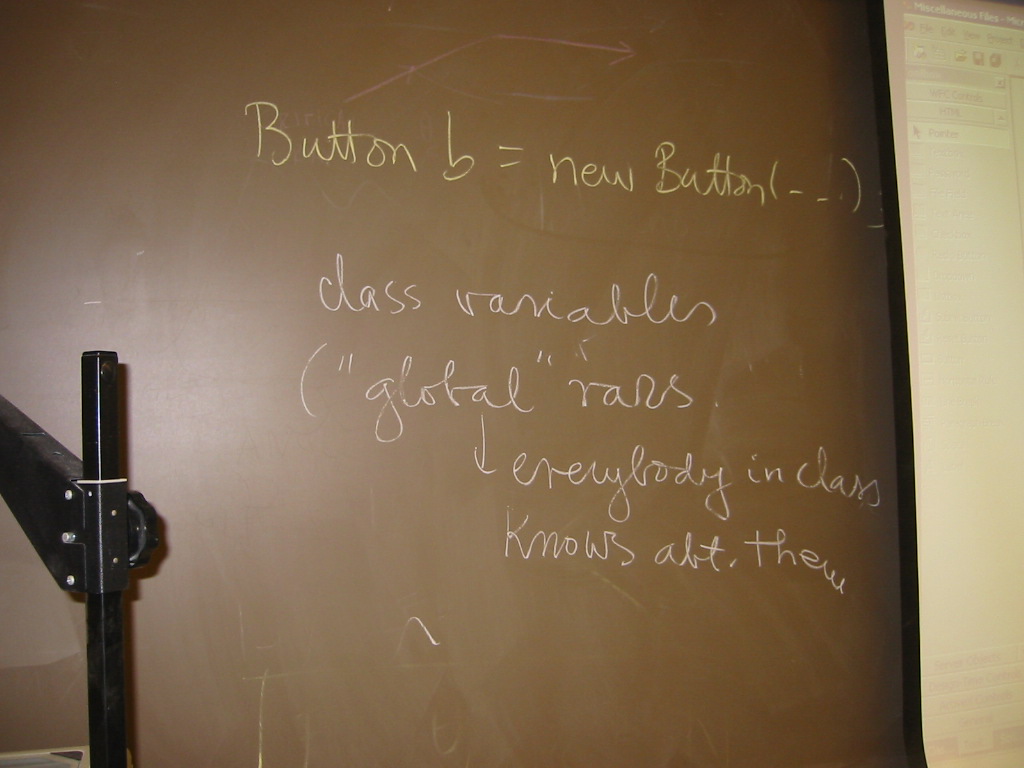 Button b = new Button(- - .)
class variables
("global" vars
everybody in class
knows abt. them
Miscellaneous Files - Micr
HTML
Pointer